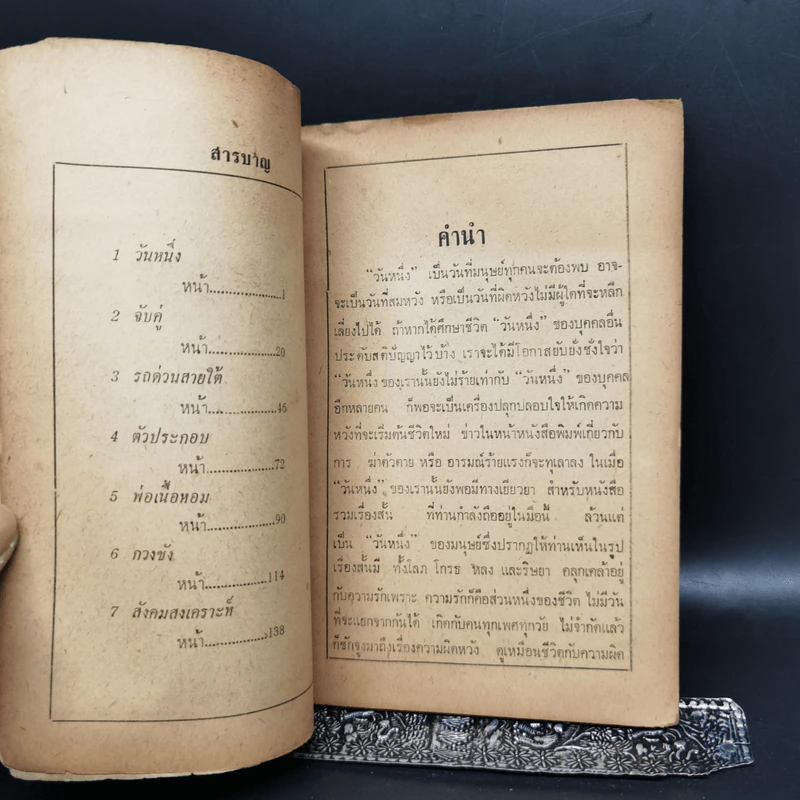 สารบาญ
1 วันหนึ่ง
หน้า....................1
2 จับคู่
หน้า...................20
3 รถด่วนสายใต้
หน้า...................46
4 ตัวประกอบ
หน้า...................72
5 พ่อเนื้อหอม
หน้า...................90
6 กวงซัง
หน้า..................114
7 สังคมสงเคราะห์
หน้า..................138
คำนำ
“วันหนึ่ง” เป็นวันที่มนุษย์ทุกคนจะต้องพบ อาจ-
จะเป็นวันที่สมหวัง หรือเป็นวันที่ผิดหวังไม่มีผู้ใดที่จะหลีก
เลี่ยงไปได้ ถ้าหากได้ศึกษาชีวิต “วันหนึ่ง” ของบุคคลอื่น
ประดับสติปัญญาไว้บ้าง เราจะได้มีโอกาสยับยั้งชั่งใจว่า
“วันหนึ่ง ของเรานั้นยังไม่ร้ายเท่ากับ “วันหนึ่ง” ของบุคคล
อีกหลายคน ก็พอจะเป็นเครื่องปลุกปลอบใจให้เกิดความ
หวังที่จะเริ่มต้นชีวิตใหม่ ข่าวในหน้าหนังสือพิมพ์เกี่ยวกับ
การ ฆ่าตัวตาย หรือ อารมณ์ร้ายแรงก็จะทุเลาลง ในเมื่อ
“วันหนึ่ง” ของเรานั้นยังพอมีทางเยียวยา สำหรับหนังสือ
รวมเรื่องสั้น ที่ท่านกำลังถืออยู่ในมือนี้ ล้วนแต่
เป็น “วันหนึ่ง” ของมนุษย์ซึ่งปรากฏให้ท่านเห็นในรูป
เรื่องสั้นมี ทั้งโลภ โกรธ หลง และริษยา คลุกเคล้าอยู่
กับความรักเพราะ ความรักก็คือส่วนหนึ่งของชีวิต ไม่มีวัน
ที่จะแยกจากกันได้ เกิดกับคนทุกเพศทุกวัย ไม่จำกัดแล้ว
ก็ชักจูงมาถึงเรื่องความผิดหวัง ดูเหมือนชีวิตกับความผิด